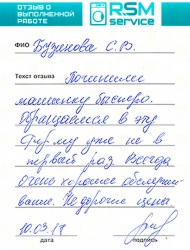 ОТЗЫВ О
ВЫПОЛНЕННОЙ
РАБОТЕ
RSM
service
ФИО Бузинова С.В.
Текст отзыва Починили
машинку быстро.
Обращаемся в эту
фирму уже не в
первый раз Всегда
очень хорошее обслужи-
вание. Недорогие цены
10.03.17
дата
подпись